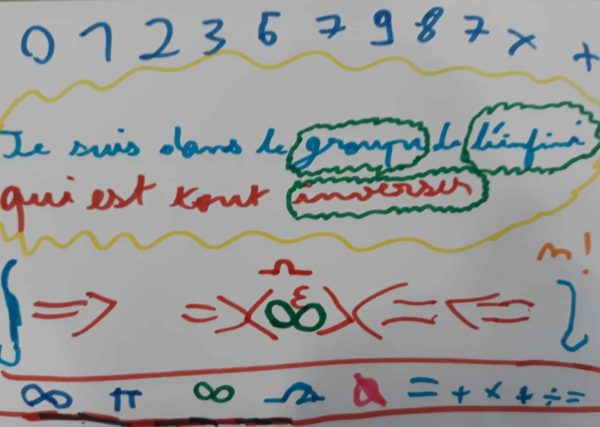 0 1 2 3 6 7 9 8 7 × +
Je suis dans le groupe de l'infini
qui est tout inverser
n!
∞ π ∞ = + × + ÷ =